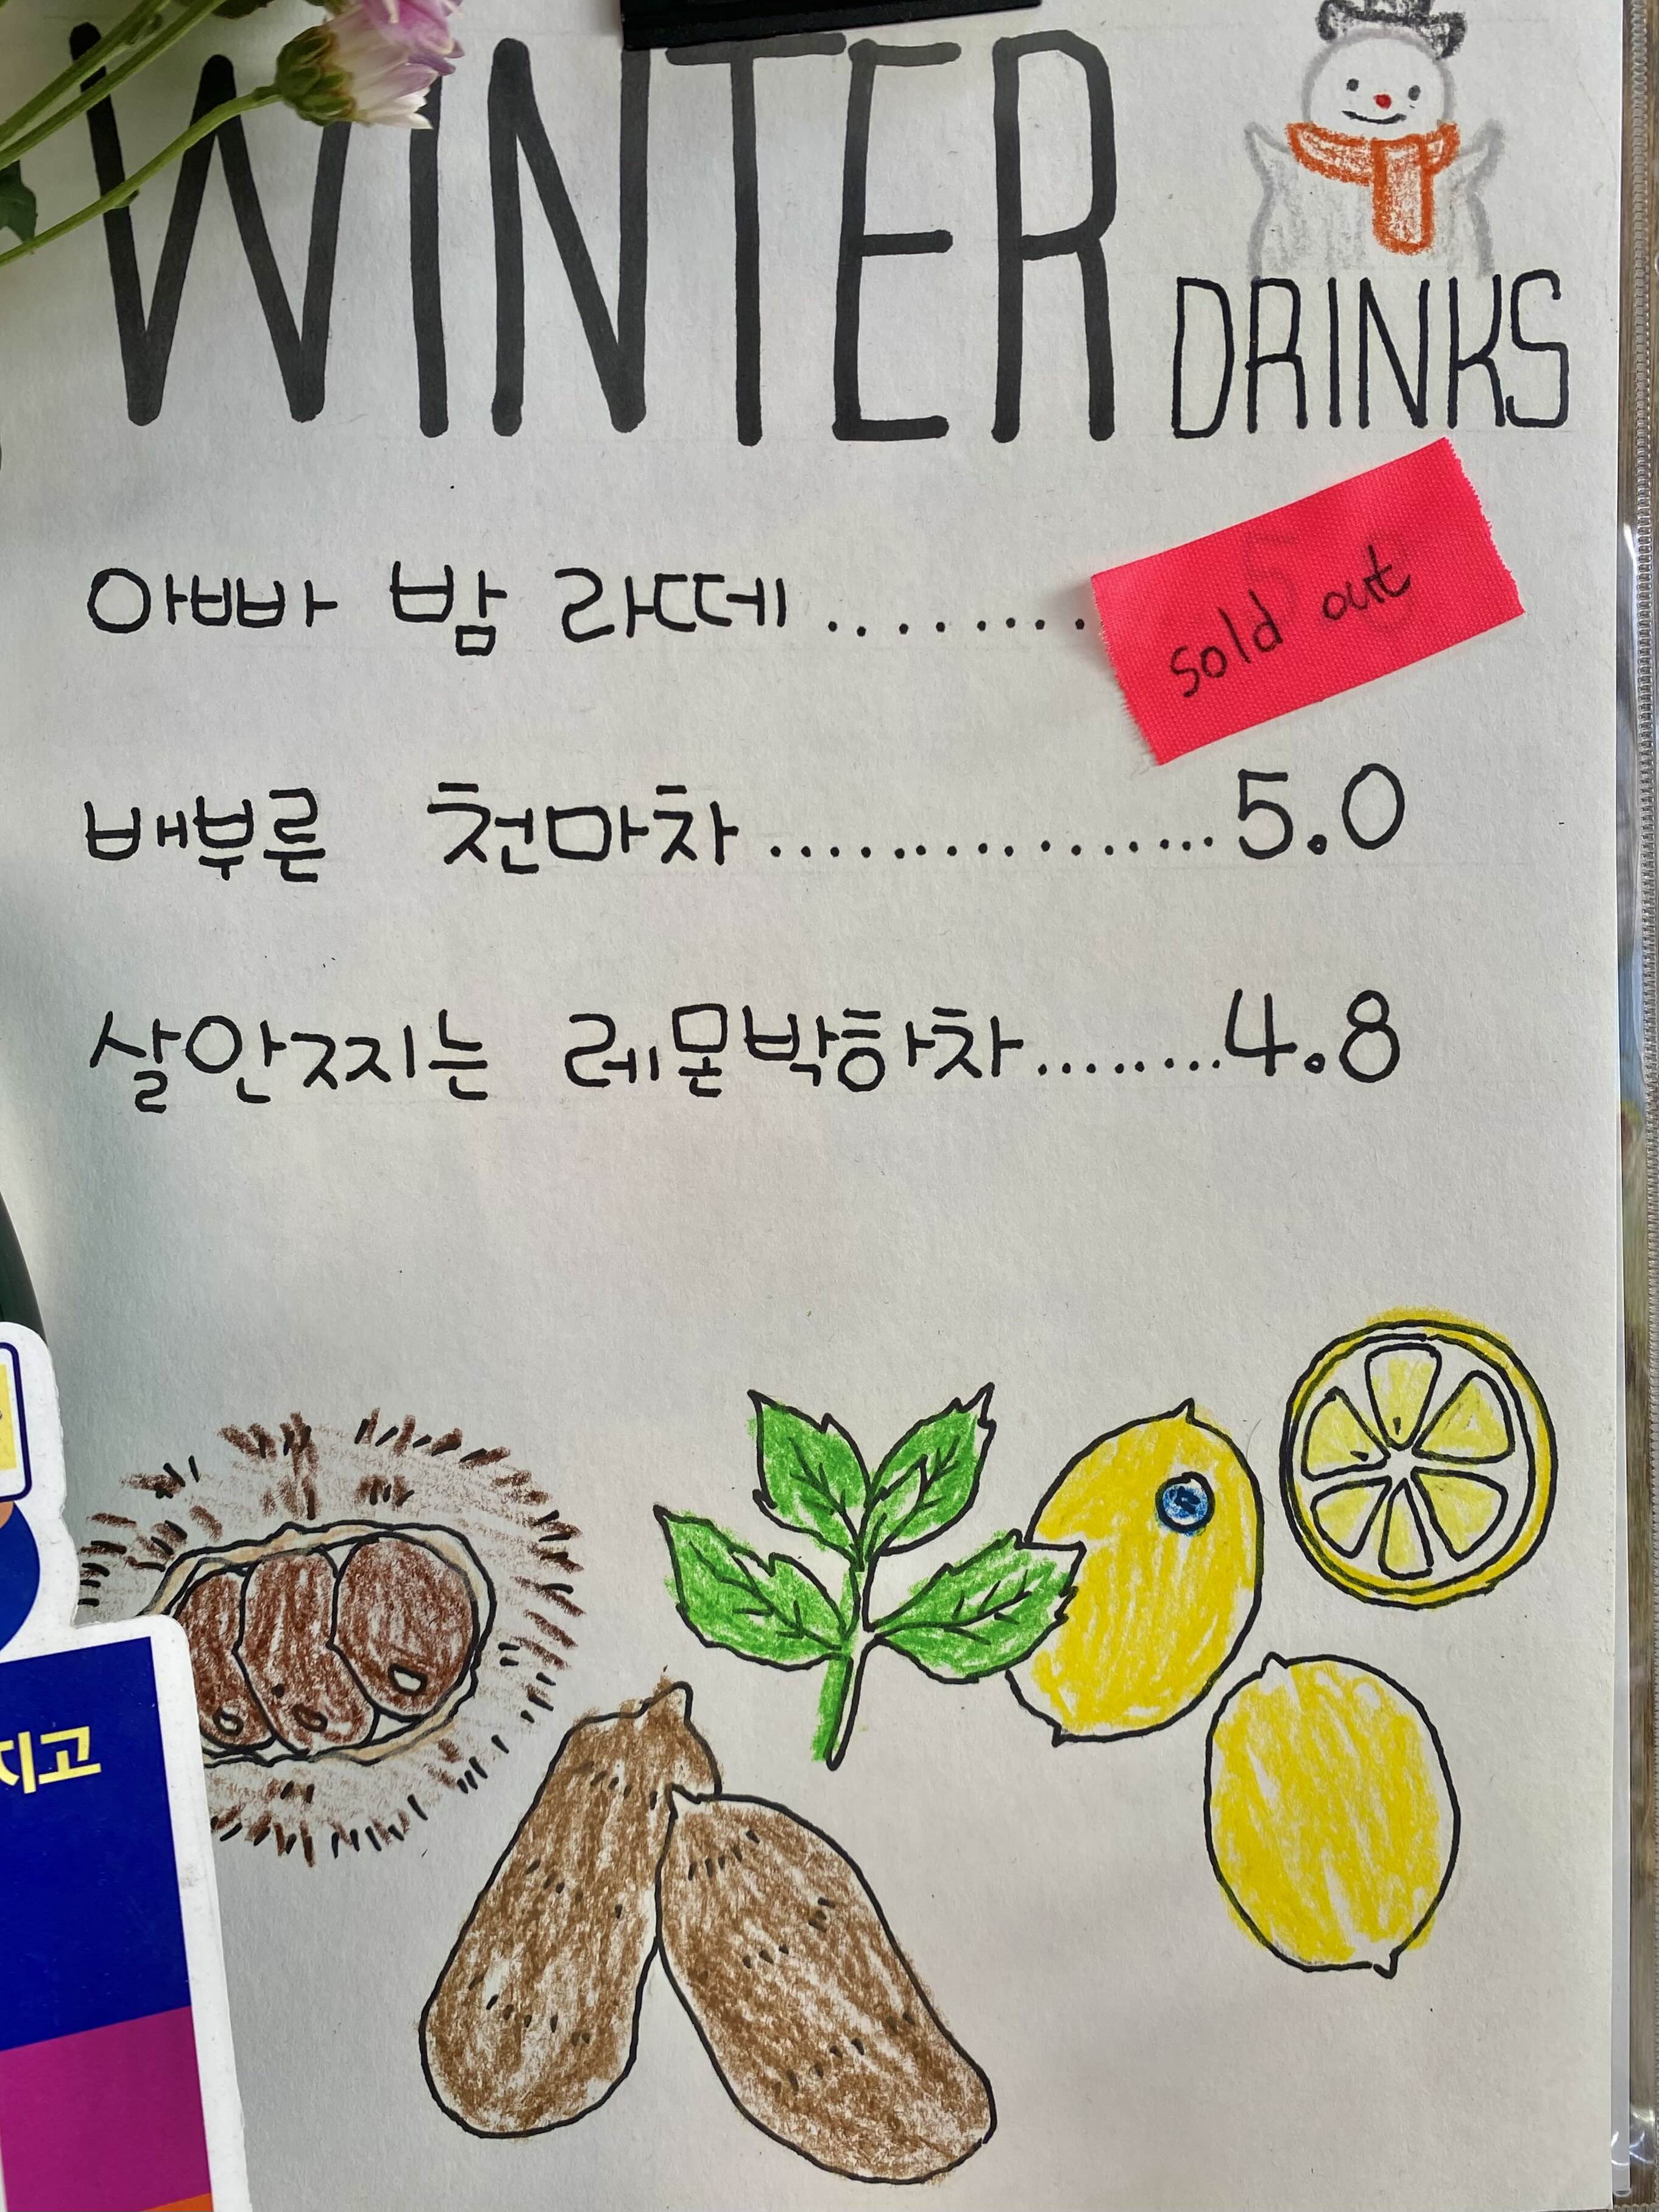 WINTER DRINKS
아빠 밤 라떼......... sold out
배부른 천마차.................5.0
살안찌는 레몬박하차........4.8
치고